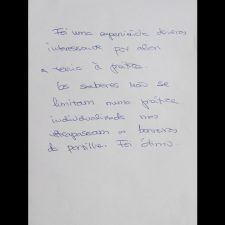 Foi uma experiência deveras
interessante por aliar
a teoria à prática.
Os saberes não se
limitam numa prática
individualizada mas
ultrapassam as barreiras
da partilha. Foi ótimo.